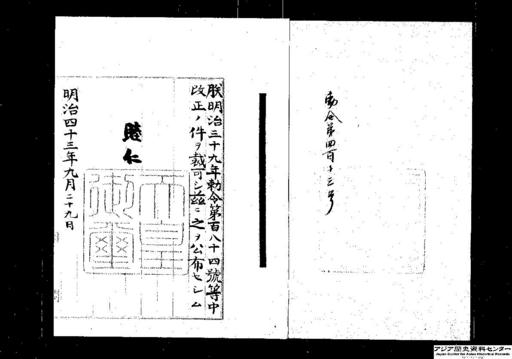 勅令第四百十三号
朕明治三十九年勅令第百八十四號等中
改正ノ件ヲ裁可シ茲ニ之ヲ公布セシム
睦仁
天皇
御璽
明治四十三年九月二十九日
アジア歴史資料センター
Japan Center for Asian Historical Records